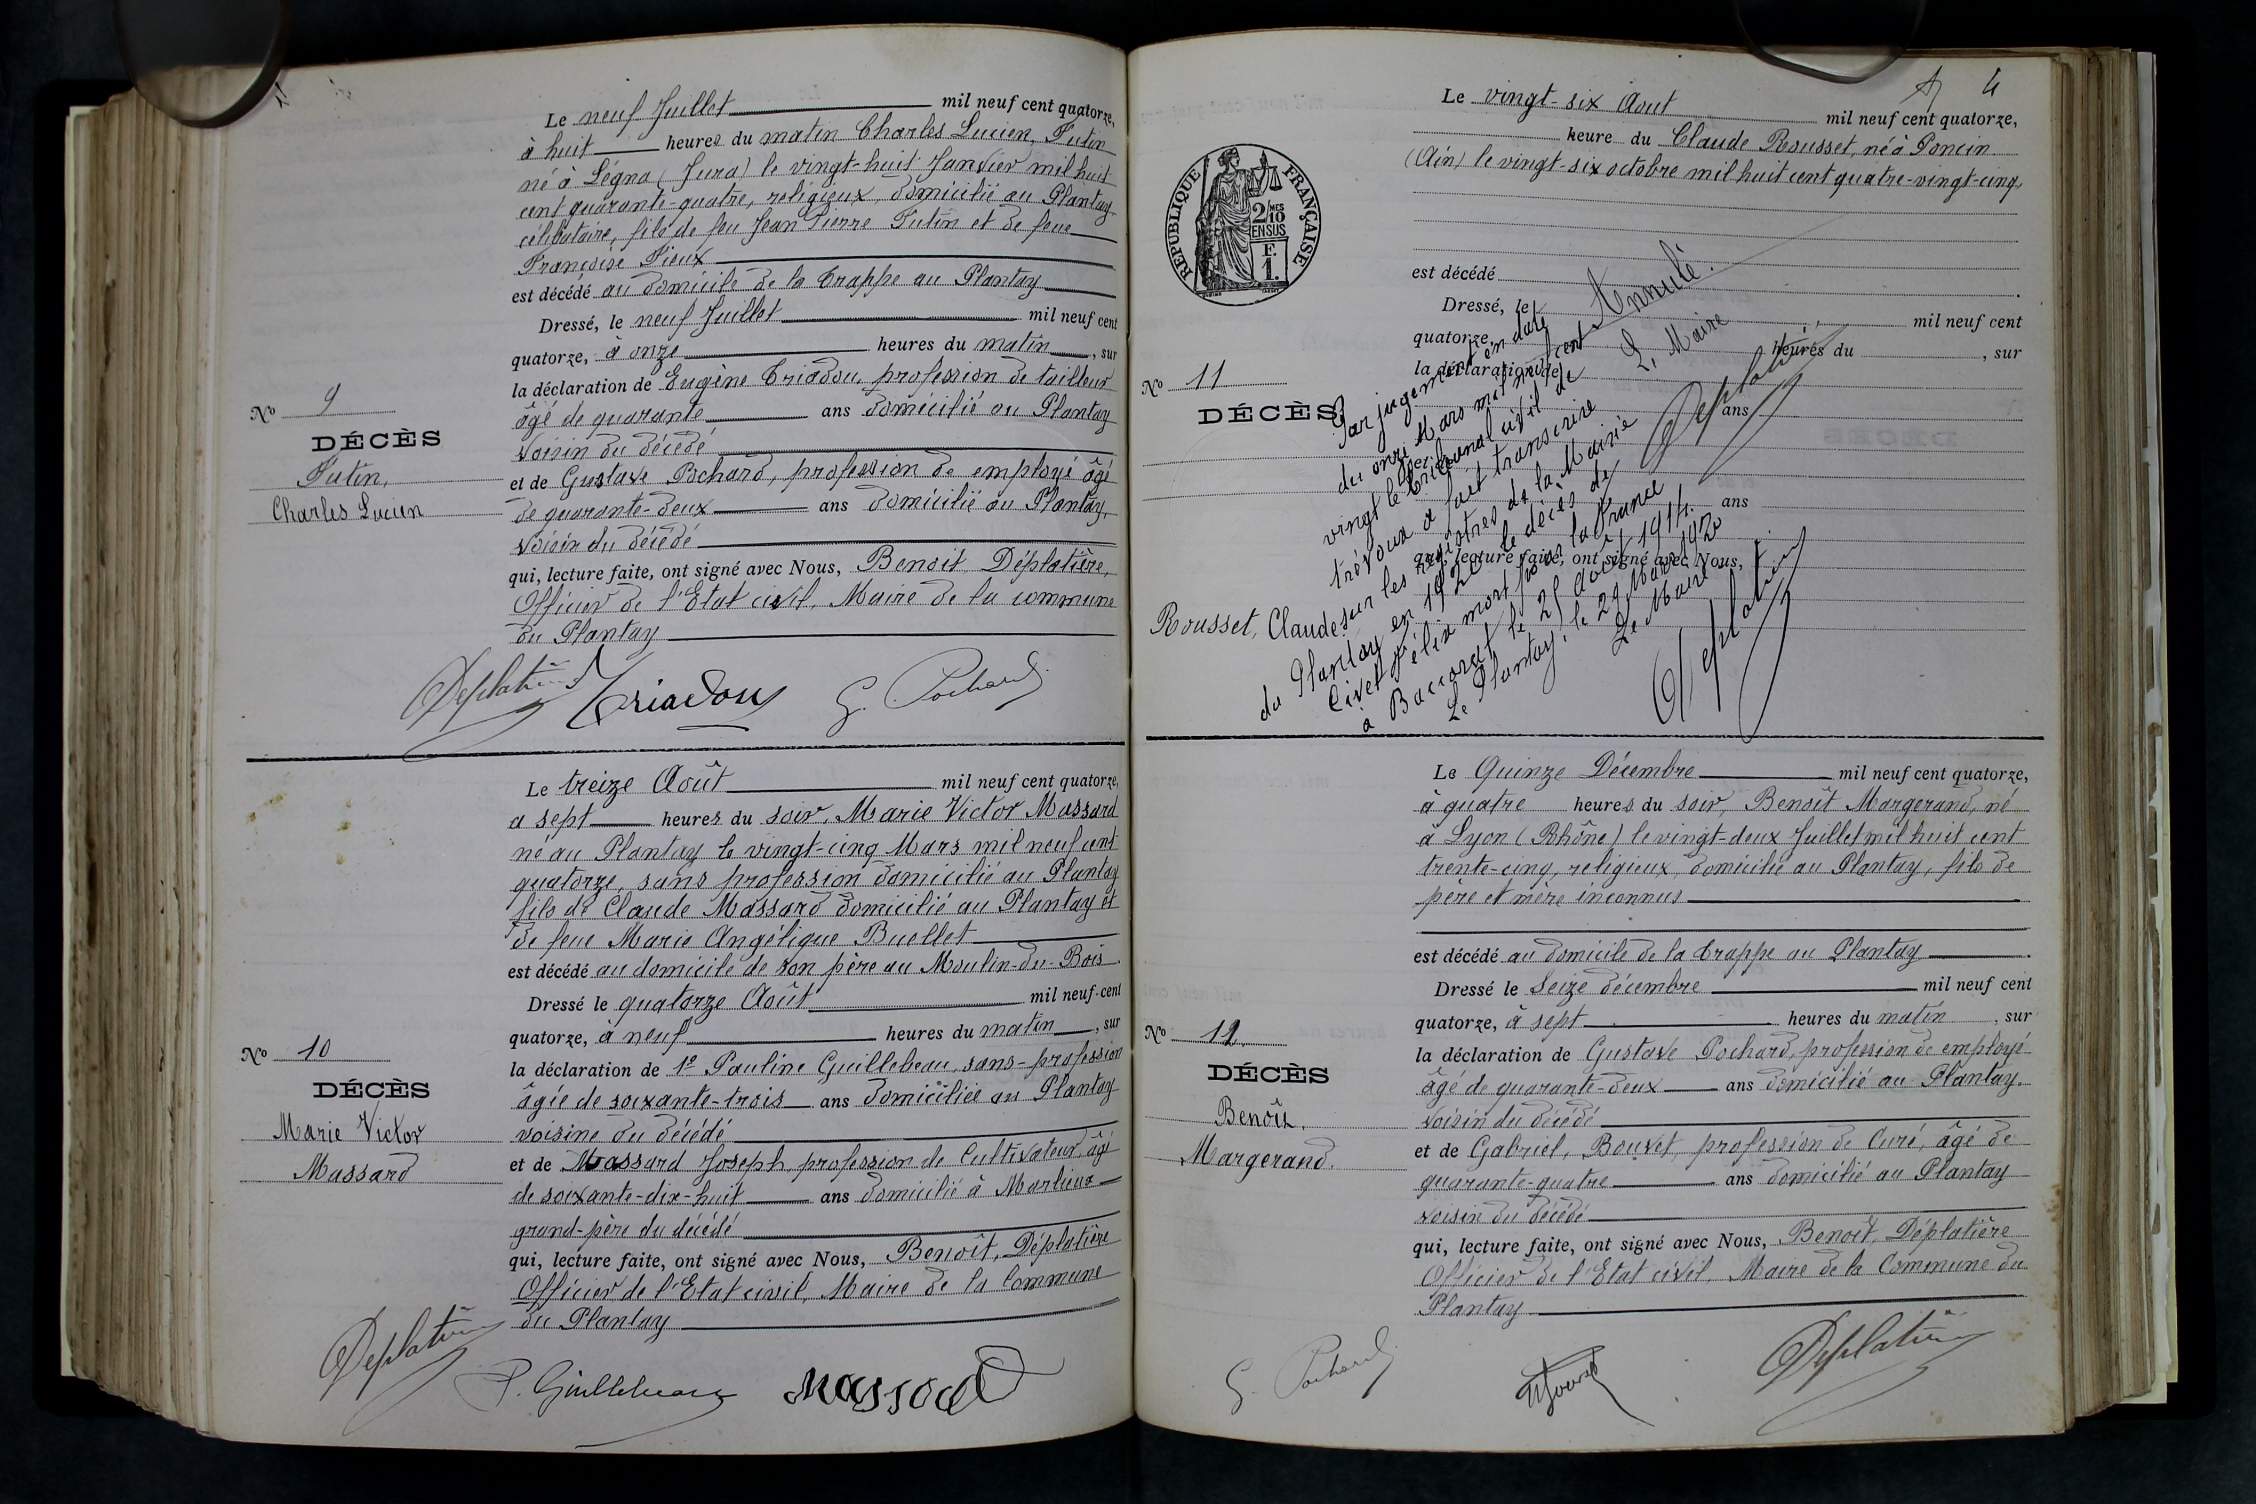 Le neuf Juillet mil neuf cent quatorze,
à huit heures du matin Charles Lucien, Futin
né à Légna (Jura) le vingt-huit Janvier mil huit
cent quarante-quatre, religieux, domicilié au Plantay
célibataire, fils de feu Jean Pierre Futin et de feue
Françoise Fieux
est décédé au domicile de la Trappe au Plantay
Dressé, le neuf Juillet mil neuf cent
quatorze, à onze heures du matin, sur
la déclaration de Eugène Triadou, profession de tailleur
âgé de quarante ans domicilié au Plantay
voisin du décédé
et de Gustave Pochard, profession de employé âgé
de quarante-deux ans domicilié au Plantay,
voisin du décédé
qui, lecture faite, ont signé avec Nous, Benoit Déplatière,
Officier de l'Etat civil, Maire de la commune
du Plantay
No 9
DÉCÈS
Futin,
Charles Lucien
Déplatière Triadou G. Pochard
Le treize Août mil neuf cent quatorze,
a sept heures du soir, Marie Victor Massard
né au Plantay le vingt-cinq Mars mil neuf cent
quatorze, sans profession domicilié au Plantay
fils de Claude Massard domicilié au Plantay et
de feue Marie Angélique Buellet
est décédé au domicile de son père au Moulin-du-Bois.
Dressé le quatorze Août mil neuf-cent
quatorze, à neuf heures du matin, sur
la déclaration de 1º Pauline Guillebeau, sans-profession
âgée de soixante-trois ans domiciliée au Plantay
voisine du décédé
et de Massard Joseph, profession de Cultivateur, âgé
de soixante-dix-huit ans domicilié à Marlieux
grand-père du décédé
qui, lecture faite, ont signé avec Nous, Benoît, Déplatière
Officier de l'Etat civil, Maire de la Commune
du Plantay
No 10
DÉCÈS
Marie Victor
Massard
Déplatière P. Guillebeau Massard
4
Le vingt-six Aout mil neuf cent quatorze,
heure du Claude Rousset, né à Poncin
(Ain) le vingt-six octobre mil huit cent quatre-vingt-cinq,
est décédé
Dressé, le mil neuf cent
quatorze, heures du , sur
la déclaration de
ans
ans
qui, lecture faite, ont signé avec Nous,
RÉPUBLIQUE FRANÇAISE
2/10 MES
EN SUS
F.
1.
No 11
DÉCÈS
Rousset, Claude
Annulé.
L. Maire
Déplatière
Par jugement en date
du onze Mars mil neuf cent
vingt le tribunal civil de
trévoux a fait transcrire
sur les registres de la Mairie
du Plantay en 1920 le décès de
Civet Félix mort pour la France
à Baccarat le 25 Aout 1914.
Le Plantay, le 29 Mars 1920
Le Maire
Déplatière
Le Quinze Décembre mil neuf cent quatorze,
à quatre heures du soir, Benoît Margerand, né
à Lyon (Rhône) le vingt-deux Juillet mil huit cent
trente-cinq, religieux, domicilié au Plantay, fils de
père et mère inconnus
est décédé au domicile de la Trappe au Plantay
Dressé le Seize décembre mil neuf cent
quatorze, à sept heures du matin, sur
la déclaration de Gustave Pochard, profession de employé
âgé de quarante-deux ans domicilié au Plantay.
voisin du décédé
et de Gabriel, Bouvet, profession de Curé, âgé de
quarante-quatre ans domicilié au Plantay
voisin du décédé
qui, lecture faite, ont signé avec Nous, Benoit, Déplatière
Officier de l'Etat civil, Maire de la Commune du
Plantay
No 12.
DÉCÈS
Benoît,
Margerand.
G. Pochard Bouvet Déplatière